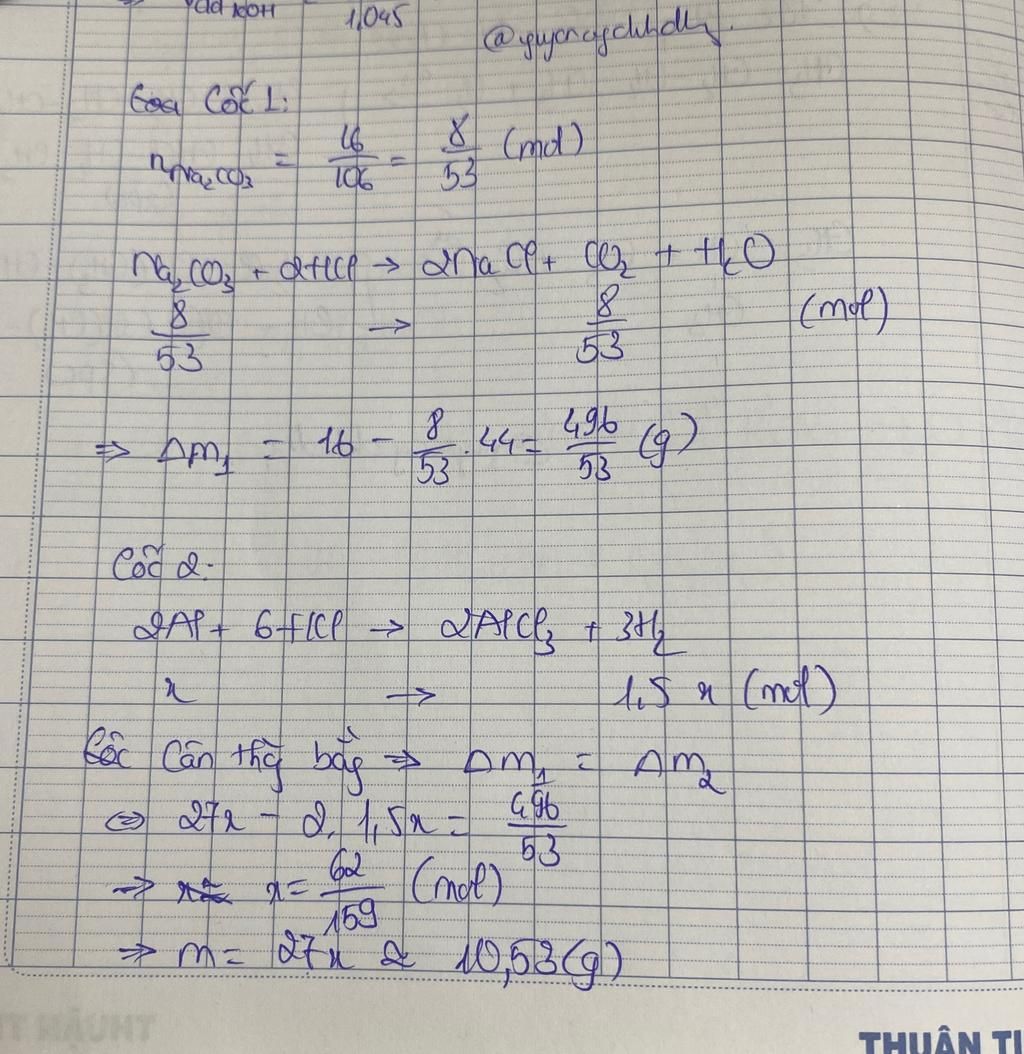 dd KOH 1,045
Cốc 1:
nNa₂CO₃ = 16/106 = 8/53 (mol)
Na₂CO₃ + 2HCl → 2NaCl + CO₂ + H₂O
8/53 → 8/53 (mol)
⇒ Δm₁ = 16 - 8/53 . 44 = 496/53 (g)
Cốc 2:
2Al + 6HCl → 2AlCl₃ + 3H₂
x → 1,5 x (mol)
Cân thg bằg ⇒ Δm₁ = Δm₂
⇔ 27x - 2. 1,5x = 496/53
→ x = 62/159 (mol)
⇒ m = 27x ≈ 10,53 (g)
THUẬN TI